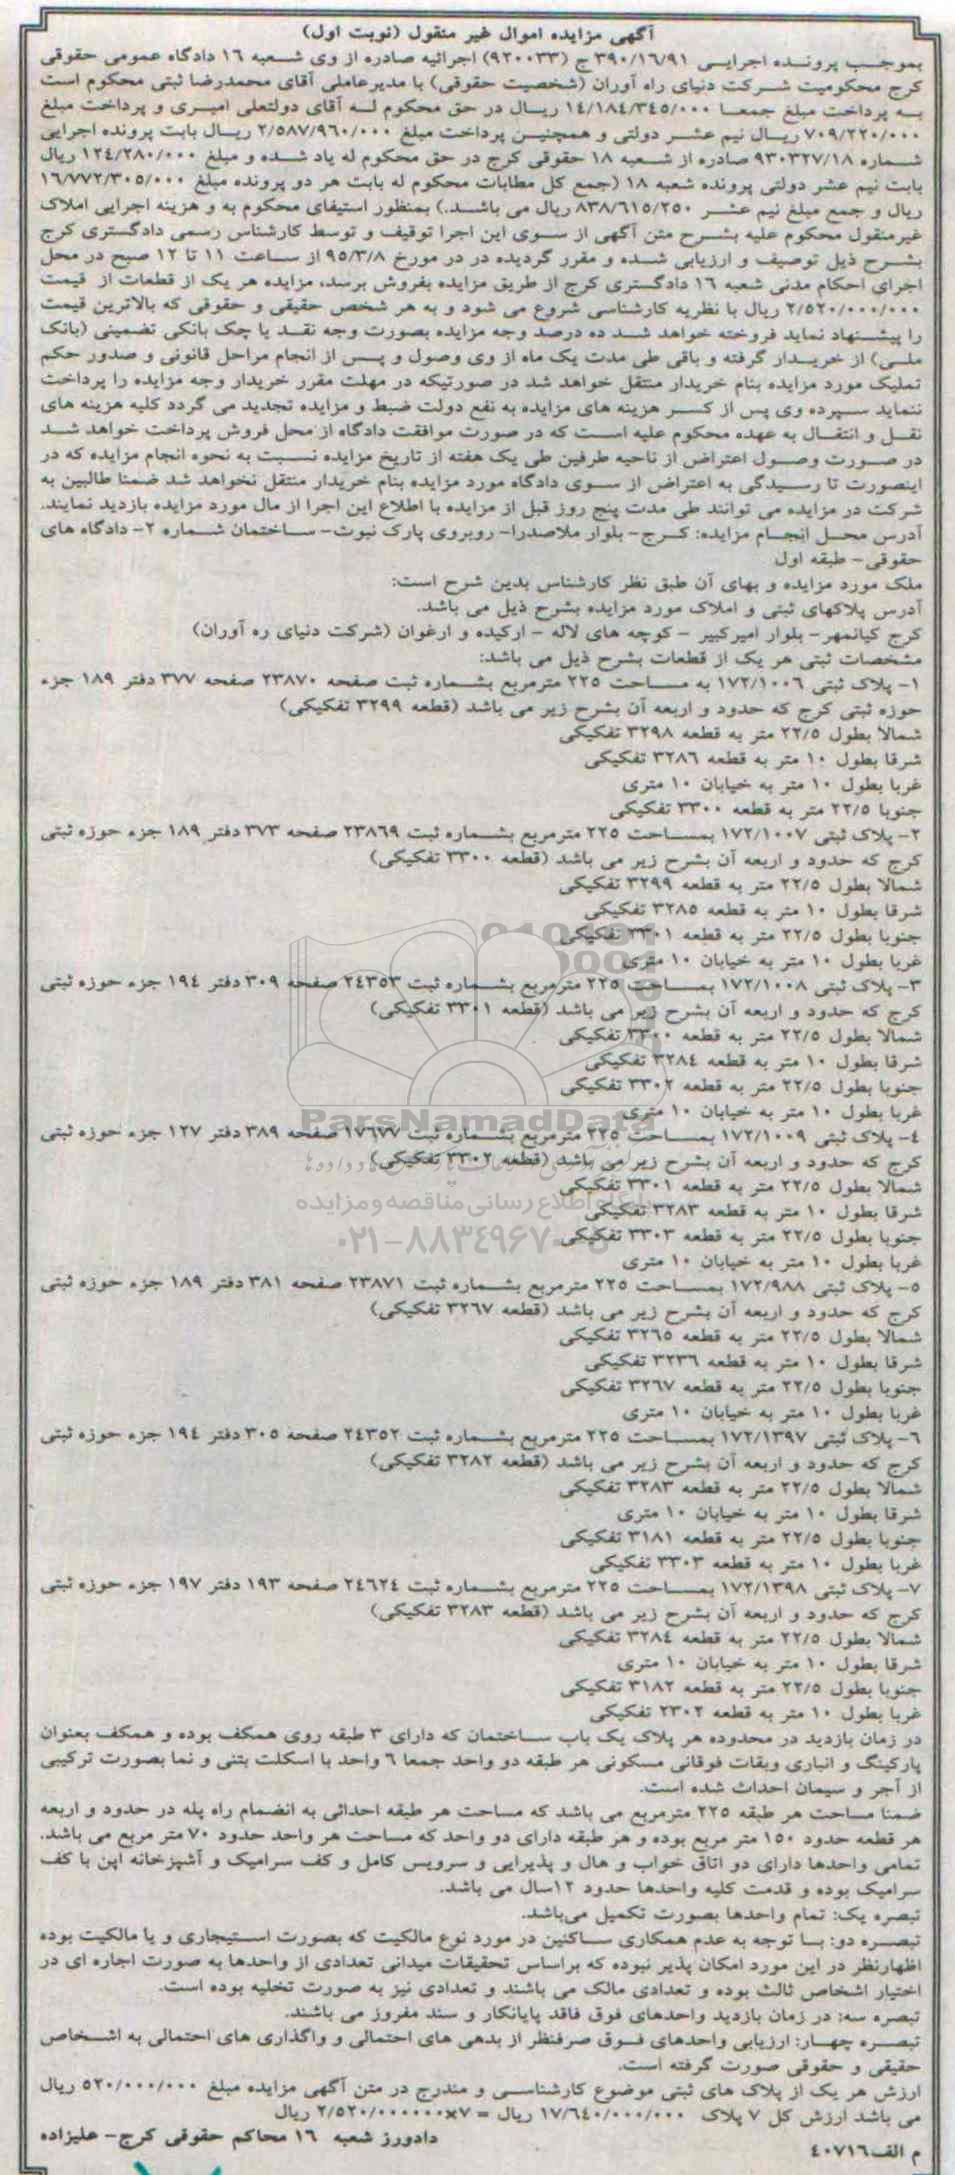 آگهی مزایده اموال غیر منقول (نوبت اول)
بموجب پرونده اجرایی ۳۹۰/۱۶/۹۱ ج (۹۲۰۰۳۳) اجرائیه صادره از وی شعبه ۱۶ دادگاه عمومی حقوقی
کرج محکومیت شرکت دنیای راه آوران (شخصیت حقوقی) با مدیرعاملی آقای محمدرضا ثبتی محکوم است
به پرداخت مبلغ جمعا ۱۴/۱۸۴/۳۴۵/۰۰۰ ریال در حق محکوم له آقای دولتعلی امیری و پرداخت مبلغ
۷۰۹/۲۲۰/۰۰۰ ریال نیم عشر دولتی و همچنین پرداخت مبلغ ۲/۵۸۷/۹۶۰/۰۰۰ ریال بابت پرونده اجرایی
شماره ۹۳۰۳۲۷/۱۸ صادره از شعبه ۱۸ حقوقی کرج در حق محکوم له یاد شده و مبلغ ۱۲۴/۲۸۰/۰۰۰ ریال
بابت نیم عشر دولتی پرونده شعبه ۱۸ (جمع کل مطابات محکوم له بابت هر دو پرونده مبلغ ۱۶/۷۷۲/۳۰۵/۰۰۰
ریال و جمع مبلغ نیم عشر ۸۳۸/۶۱۵/۲۵۰ ریال می باشد.) بمنظور استیفای محکوم به و هزینه اجرایی املاک
غیرمنقول محکوم علیه بشرح متن آگهی از سوی این اجرا توقیف و توسط کارشناس رسمی دادگستری کرج
بشرح ذیل توصیف و ارزیابی شده و مقرر گردیده در در مورخ ۹۵/۳/۸ از ساعت ۱۱ تا ۱۲ صبح در محل
اجرای احکام مدنی شعبه ۱۶ دادگستری کرج از طریق مزایده بفروش برسد، مزایده هر یک از قطعات از قیمت
۲/۵۲۰/۰۰۰/۰۰۰ ریال با نظریه کارشناسی شروع می شود و به هر شخص حقیقی و حقوقی که بالاترین قیمت
را پیشنهاد نماید فروخته خواهد شد ده درصد وجه مزایده بصورت وجه نقد یا چک بانکی تضمینی (بانک
ملی) از خریدار گرفته و باقی طی مدت یک ماه از وی وصول و پس از انجام مراحل قانونی و صدور حکم
تملیک مورد مزایده بنام خریدار منتقل خواهد شد در صورتیکه در مهلت مقرر خریدار وجه مزایده را پرداخت
ننماید سپرده وی پس از کسر هزینه های مزایده به نفع دولت ضبط و مزایده تجدید می گردد کلیه هزینه های
نقل و انتقال به عهده محکوم علیه است که در صورت موافقت دادگاه از محل فروش پرداخت خواهد شد
در صورت وصول اعتراض از ناحیه طرفین طی یک هفته از تاریخ مزایده نسبت به نحوه انجام مزایده که در
اینصورت تا رسیدگی به اعتراض از سوی دادگاه مورد مزایده بنام خریدار منتقل نخواهد شد ضمنا طالبین به
شرکت در مزایده می توانند طی مدت پنج روز قبل از مزایده با اطلاع این اجرا از مال مورد مزایده بازدید نمایند.
آدرس محل انجام مزایده: کرج- بلوار ملاصدرا- روبروی پارک نبوت- ساختمان شماره ۲- دادگاه های
حقوقی- طبقه اول
ملک مورد مزایده و بهای آن طبق نظر کارشناس بدین شرح است:
آدرس پلاکهای ثبتی و املاک مورد مزایده بشرح ذیل می باشد.
کرج کیانمهر- بلوار امیرکبیر - کوچه های لاله - ارکیده و ارغوان (شرکت دنیای ره آوران)
مشخصات ثبتی هر یک از قطعات بشرح ذیل می باشد:
۱- پلاک ثبتی ۱۷۲/۱۰۰۶ به مساحت ۲۲۵ مترمربع بشماره ثبت صفحه ۲۳۸۷۰ صفحه ۳۷۷ دفتر ۱۸۹ جزء
حوزه ثبتی کرج که حدود و اربعه آن بشرح زیر می باشد (قطعه ۳۲۹۹ تفکیکی)
شمالا بطول ۲۲/۵ متر به قطعه ۳۲۹۸ تفکیکی
شرقا بطول ۱۰ متر به قطعه ۳۲۸۶ تفکیکی
غربا بطول ۱۰ متر به خیابان ۱۰ متری
جنوبا ۲۲/۵ متر به قطعه ۳۳۰۰ تفکیکی
۲- پلاک ثبتی ۱۷۲/۱۰۰۷ بمساحت ۲۲۵ مترمربع بشماره ثبت ۲۳۸۶۹ صفحه ۳۷۳ دفتر ۱۸۹ جزء حوزه ثبتی
کرج که حدود و اربعه آن بشرح زیر می باشد (قطعه ۳۳۰۰ تفکیکی)
شمالا بطول ۲۲/۵ متر به قطعه ۳۲۹۹ تفکیکی
شرقا بطول ۱۰ متر به قطعه ۳۲۸۵ تفکیکی
جنوبا بطول ۲۲/۵ متر به قطعه ۳۳۰۱ تفکیکی
غربا بطول ۱۰ متر به خیابان ۱۰ متری
۳- پلاک ثبتی ۱۷۲/۱۰۰۸ بمساحت ۲۲۵ مترمربع بشماره ثبت ۲۴۳۵۳ صفحه ۳۰۹ دفتر ۱۹۴ جزء حوزه ثبتی
کرج که حدود و اربعه آن بشرح زیر می باشد (قطعه ۳۳۰۱ تفکیکی)
شمالا بطول ۲۲/۵ متر به قطعه ۳۳۰۰ تفکیکی
شرقا بطول ۱۰ متر به قطعه ۳۲۸۴ تفکیکی
جنوبا بطول ۲۲/۵ متر به قطعه ۳۳۰۲ تفکیکی
غربا بطول ۱۰ متر به خیابان ۱۰ متری
ParsNamadData
۴- پلاک ثبتی ۱۷۲/۱۰۰۹ بمساحت ۲۲۵ مترمربع بشماره ثبت ۱۷۶۷۷ صفحه ۳۸۹ دفتر ۱۲۷ جزء حوزه ثبتی
کرج که حدود و اربعه آن بشرح زیر می باشد (قطعه ۳۳۰۲ تفکیکی)
شمالا بطول ۲۲/۵ متر به قطعه ۳۳۰۱ تفکیکی
پایگاه اطلاع رسانی مناقصه و مزایده
شرقا بطول ۱۰ متر به قطعه ۳۲۸۳ تفکیکی
جنوبا بطول ۲۲/۵ متر به قطعه ۳۳۰۳ تفکیکی
۰۲۱-۸۸۳۴۹۶۷۰-۵
غربا بطول ۱۰ متر به خیابان ۱۰ متری
۵- پلاک ثبتی ۱۷۲/۹۸۸ بمساحت ۲۲۵ مترمربع بشماره ثبت ۲۳۸۷۱ صفحه ۳۸۱ دفتر ۱۸۹ جزء حوزه ثبتی
کرج که حدود و اربعه آن بشرح زیر می باشد (قطعه ۳۲۶۷ تفکیکی)
شمالا بطول ۲۲/۵ متر به قطعه ۳۲۶۵ تفکیکی
شرقا بطول ۱۰ متر به قطعه ۳۲۳۶ تفکیکی
جنوبا بطول ۲۲/۵ متر به قطعه ۳۲۶۷ تفکیکی
غربا بطول ۱۰ متر به خیابان ۱۰ متری
۶- پلاک ثبتی ۱۷۲/۱۳۹۷ بمساحت ۲۲۵ مترمربع بشماره ثبت ۲۴۳۵۲ صفحه ۳۰۵ دفتر ۱۹۴ جزء حوزه ثبتی
کرج که حدود و اربعه آن بشرح زیر می باشد (قطعه ۳۲۸۲ تفکیکی)
شمالا بطول ۲۲/۵ متر به قطعه ۳۲۸۳ تفکیکی
شرقا بطول ۱۰ متر به خیابان ۱۰ متری
جنوبا بطول ۲۲/۵ متر به قطعه ۳۱۸۱ تفکیکی
غربا بطول ۱۰ متر به قطعه ۳۳۰۳ تفکیکی
۷- پلاک ثبتی ۱۷۲/۱۳۹۸ بمساحت ۲۲۵ مترمربع بشماره ثبت ۲۴۶۲۴ صفحه ۱۹۳ دفتر ۱۹۷ جزء حوزه ثبتی
کرج که حدود و اربعه آن بشرح زیر می باشد (قطعه ۳۲۸۳ تفکیکی)
شمالا بطول ۲۲/۵ متر به قطعه ۳۲۸۴ تفکیکی
شرقا بطول ۱۰ متر به خیابان ۱۰ متری
جنوبا بطول ۲۲/۵ متر به قطعه ۳۱۸۲ تفکیکی
غربا بطول ۱۰ متر به قطعه ۲۳۰۲ تفکیکی
در زمان بازدید در محدوده هر پلاک یک باب ساختمان که دارای ۳ طبقه روی همکف بوده و همکف بعنوان
پارکینگ و انباری وبقات فوقانی مسکونی هر طبقه دو واحد جمعا ۶ واحد با اسکلت بتنی و نما بصورت ترکیبی
از آجر و سیمان احداث شده است.
ضمنا مساحت هر طبقه ۲۲۵ مترمربع می باشد که مساحت هر طبقه احداثی به انضمام راه پله در حدود و اربعه
هر قطعه حدود ۱۵۰ متر مربع بوده و هر طبقه دارای دو واحد که مساحت هر واحد حدود ۷۰ متر مربع می باشد.
تمامی واحدها دارای دو اتاق خواب و هال و پذیرایی و سرویس کامل و کف سرامیک و آشپزخانه اپن با کف
سرامیک بوده و قدمت کلیه واحدها حدود ۱۲سال می باشد.
تبصره یک: تمام واحدها بصورت تکمیل می‌باشد.
تبصره دو: با توجه به عدم همکاری ساکنین در مورد نوع مالکیت که بصورت استیجاری و یا مالکیت بوده
اظهارنظر در این مورد امکان پذیر نبوده که براساس تحقیقات میدانی تعدادی از واحدها به صورت اجاره ای در
اختیار اشخاص ثالث بوده و تعدادی مالک می باشند و تعدادی نیز به صورت تخلیه بوده است.
تبصره سه: در زمان بازدید واحدهای فوق فاقد پایانکار و سند مفروز می باشند.
تبصره چهار: ارزیابی واحدهای فوق صرفنظر از بدهی های احتمالی و واگذاری های احتمالی به اشخاص
حقیقی و حقوقی صورت گرفته است.
ارزش هر یک از پلاک های ثبتی موضوع کارشناسی و مندرج در متن آگهی مزایده مبلغ ۵۲۰/۰۰۰/۰۰۰ ریال
می باشد ارزش کل ۷ پلاک ۱۷/۶۴۰/۰۰۰/۰۰۰ ریال = ۷×۲/۵۲۰/۰۰۰۰۰۰ ریال
دادورز شعبه ۱۶ محاکم حقوقی کرج- علیزاده
م الف ۴۰۷۱۶